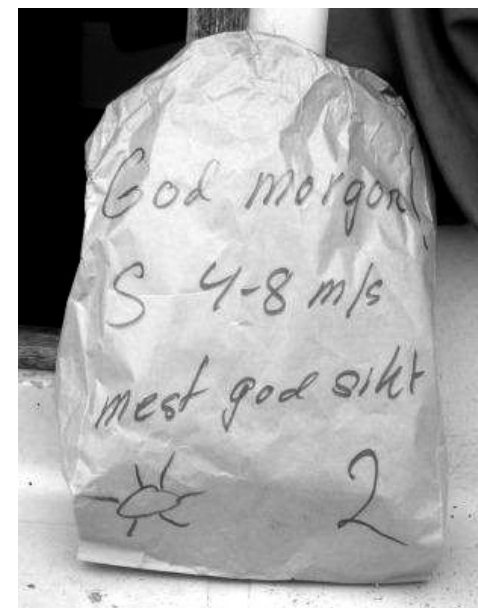 God morgon!
S 4-8 m/s
mest god sikt
2